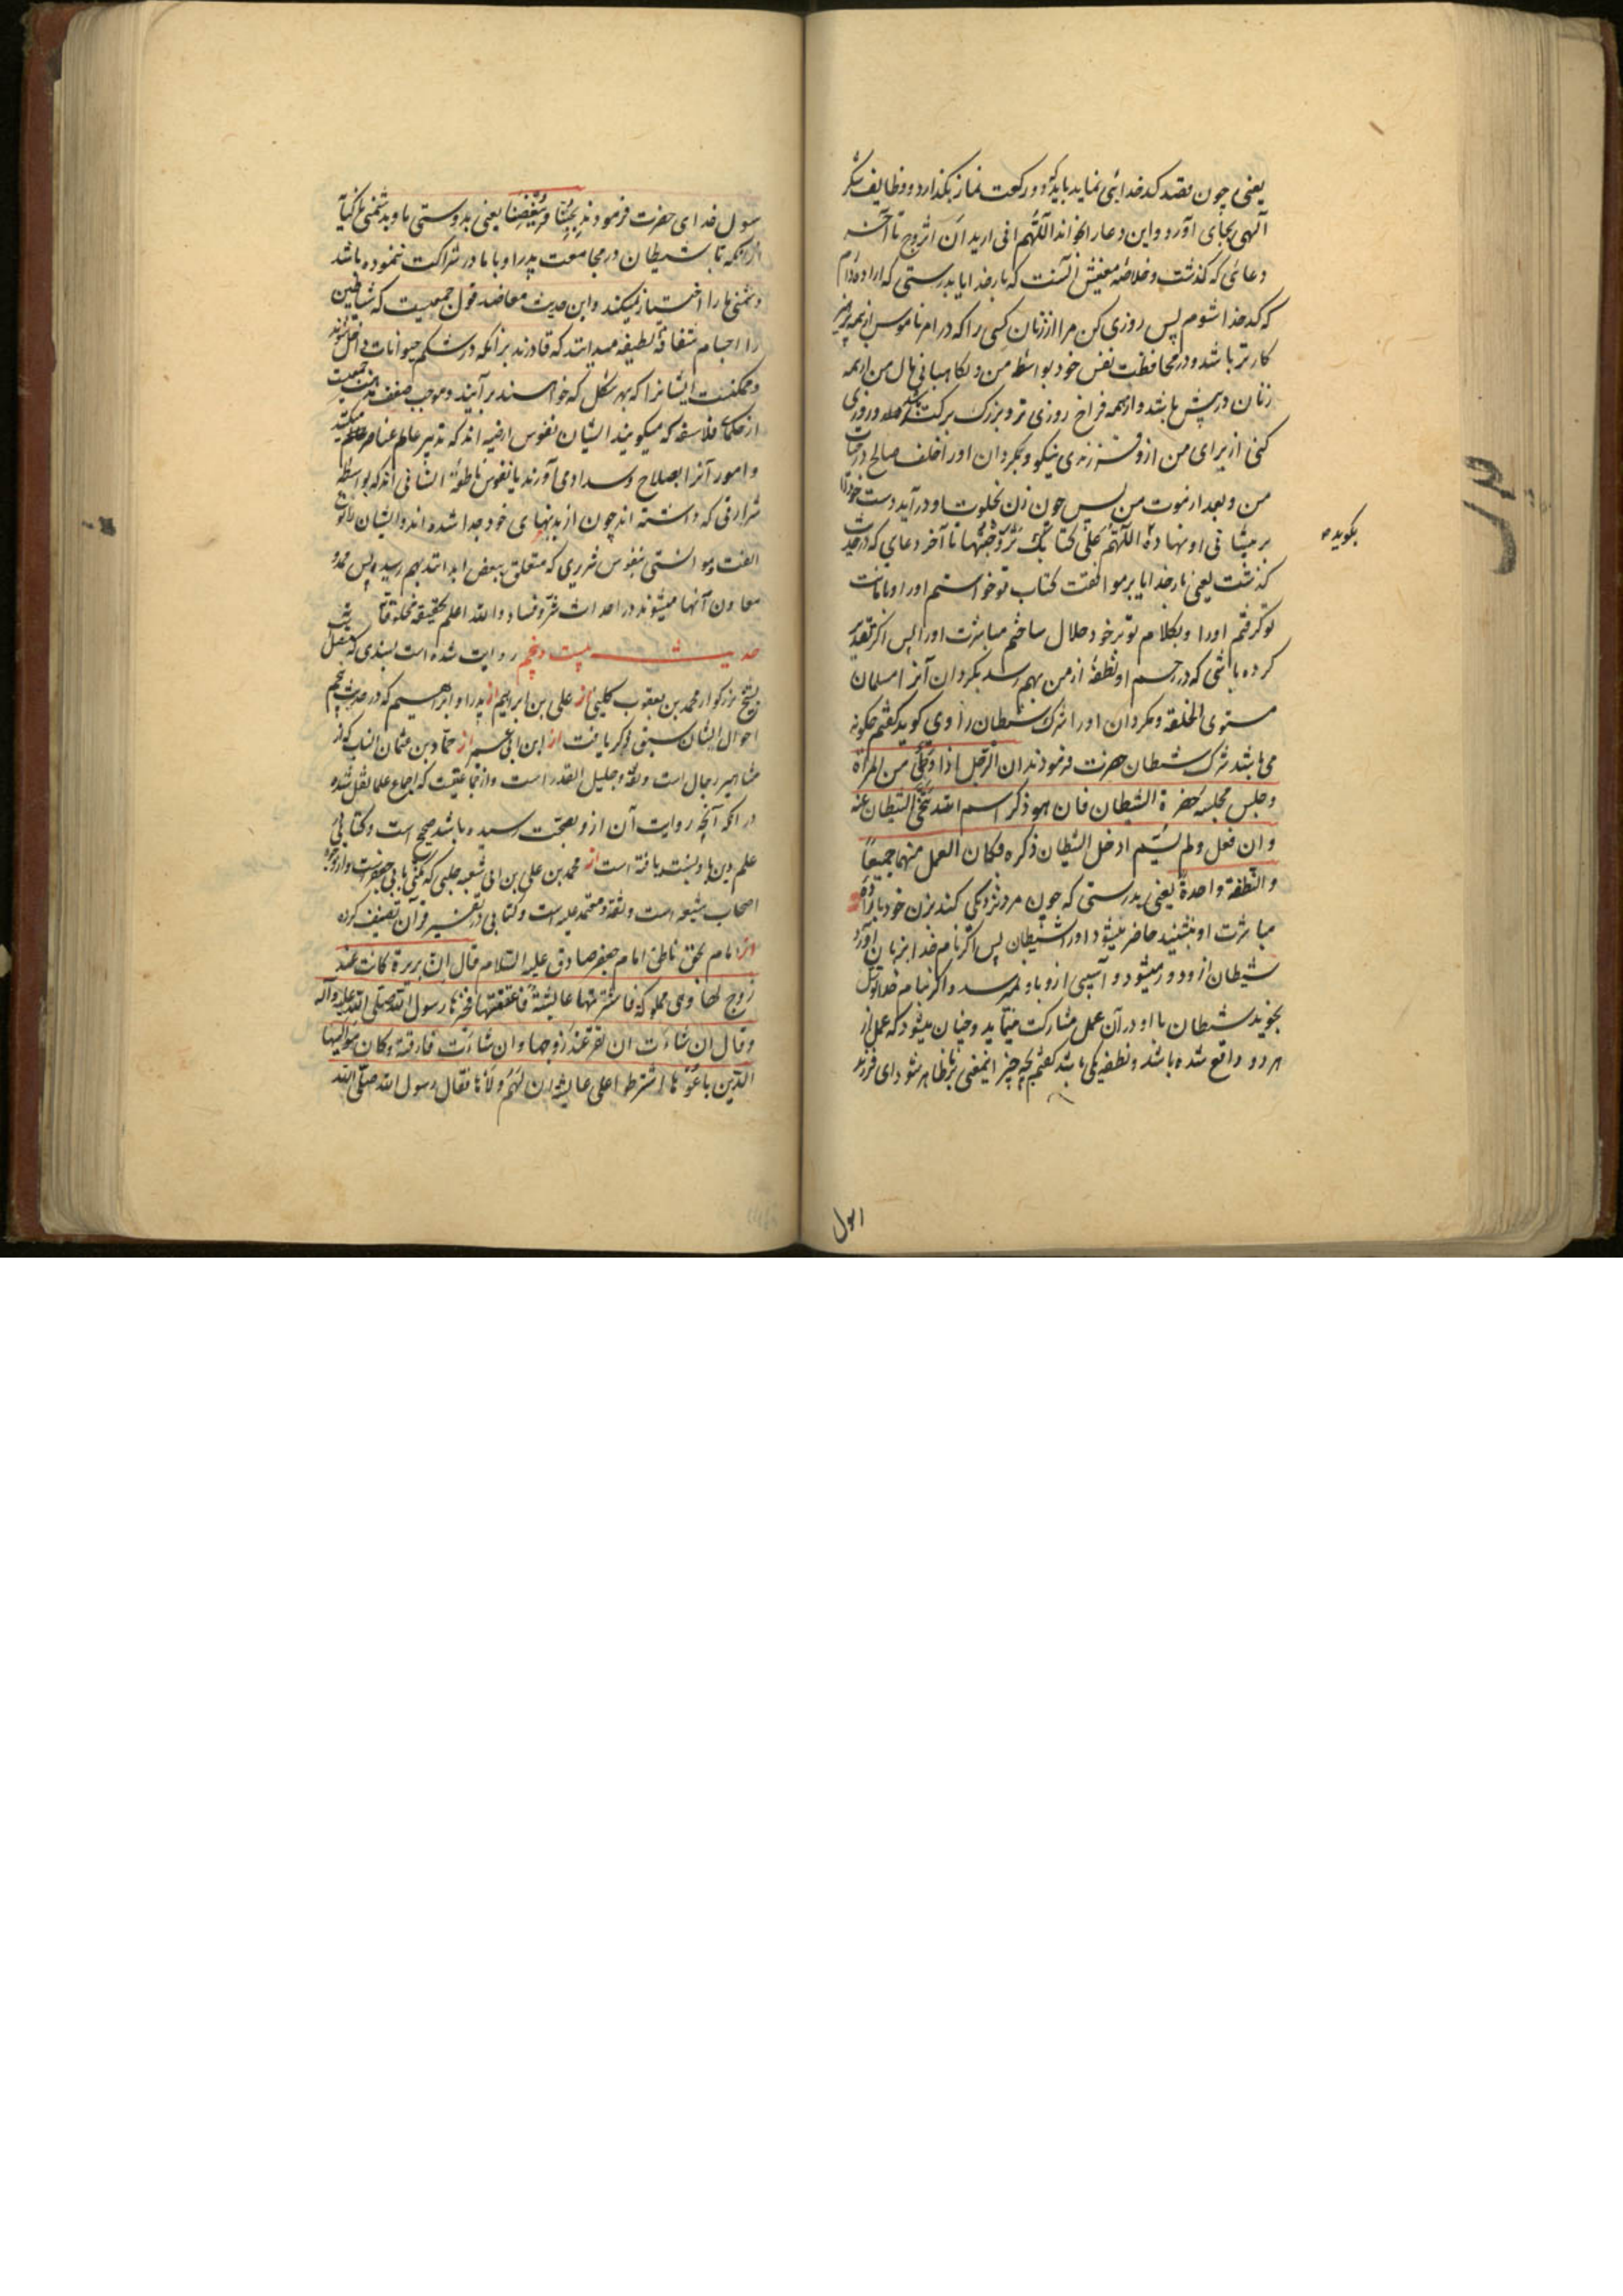 یعنی چون قصد کدخدائی نماید باید که دو رکعت نماز بگذارد و وظایف شکر
الهی بجای آورد و این دعا را بخواند اللّهم انی ارید ان اتزوج تا آخر
دعائی که گذشت و خلاصه معنیش آنست که بار خدایا بدرستی که اراده دارم
که کدخدا شوم پس روزی کن مرا از زنان کسی را که در امر ناموس از همه پرهیز
کارتر باشد و در محافظت نفس خود بواسطه من و نگاهبانی مال من از همه
زنان در پیش باشد و از همه فراخ روزی تر و بزرک برکت تر باشد و روزی
کنی از برای من ازو فرزندی نیکو و بگردان او را خلف صالح در حیات
من و بعد از موت من پس چون زن بخلوت او در آید دست خود را
بر پیشانی او نهاده اللّهم علی کتابک تزوجتها تا آخر دعای که در حدیث
بگوید
گذشت یعنی بار خدایا بر موافقت کتاب تو خواستم او را و بامانت
تو گرفتم او را و بکلام تو بر خود حلال ساختم مباشرت او را پس اگر تقدیر
کرده باشی که در رحم او نطفهٔ از من بهم رسد بگردان آنرا مسلمان
مستوی الخلقه و مگردان او را شرک شیطان راوی گوید گفتم چگونه
می باشد شرک شیطان حضرت فرمودند ان الرجل اذا دنی من المرأة
و جلس مجلسه حضره الشیطان فان هو ذکر اسم الله تنحّی الشیطان عنه
و ان فعل و لم یسمّ ادخل الشیطان ذکره فکان العمل منهما جمیعاً
و النّطفة واحدةً یعنی بدرستی که چون مرد نزدیکی کند بزن خود با اراده
مباشرت او بنشیند حاضر میشود او را شیطان پس اگر نام خدا بزبان آورد
شیطان ازو دور میشود و آسیبی ازو باو نمیرسد و اگر بنام خدا توسل
نجوید شیطان با او در آن عمل مشارکت مینماید و چنان میشود که عمل از
هر دو واقع شده باشد و نطفه یکی باشد گفتم بچه چیز این معنی ظاهر شود ای فرزند
رسول
رسول خدای حضرت فرمودند بحبّنا و بغضنا یعنی بدوستی ما و بدشمنی ما
از آنکه تا شیطان در مجامعت پدر او با مادر شراکت ننموده باشد
دشمنی ما را اختیار نمیکند و این حدیث معاضد قول جمعیست که شیاطین
را اجسام شفافهٔ لطیفه میدانند که قادرند بر آنکه در شکم حیوانات داخل شوند
و ممکنست ایشانرا که بهر شکل که خواهند بر آیند و موجب ضعف مذهب جمعیست
از حکمای فلاسفه که میگویند ایشان نفوس ارضیه اند که تدبیر عالم عناصر میکنند
و امور آنرا بصلاح و سداد می آورند یا نفوس ناطقهٔ انسانی اند که بواسطه
شرارتی که داشته اند چون از بدنهای خود جدا شده اند و ایشان را نوع
الفت و موانستی بنفوس شریری که متعلق ببعض ابدانند بهم رسیده پس ممد و
معاون آنها میشوند در احداث شر و فساد و الله اعلم بحقیقة مخلوقاته
حدیث بیست و پنجم روایت شده است بسندی که متصل است
بشیخ بزرگوار محمد بن یعقوب کلینی از علی بن ابراهیم از پدر او ابراهیم که در حدیث پنجم
احوال ایشان سبق ذکر یافت از ابن ابی عمیر از حماد بن عثمان الناب که از
مشاهیر رجال است و ثقه و جلیل القدر است و از جماعتیست که اجماع علما نقل شده
در آنکه آنچه روایت آن ازو بصحت رسیده باشد صحیح است و کتابهای
علم دین باو نسبت یافته است از محمد بن علی بن ابی شعبه حلبی
اصحاب شیعه است و ثقه و معتمد علیه است و کتابی در تفسیر قرآن تصنیف کرده
از امام بحق ناطق امام جعفر صادق علیه السّلام قال انّ بریرة کانت عند
زوج لها و هی مملوکة فاشترتها عایشة فاعتقتها فخیّرها رسول الله صلّی الله علیه و آله
و قال ان شاءت ان تقرّ عند زوجها و ان شاءت فارقته و کان موالیها
الذین باعوها اشترطوا علی عایشة ان لهم ولاءها فقال رسول الله صلّی الله